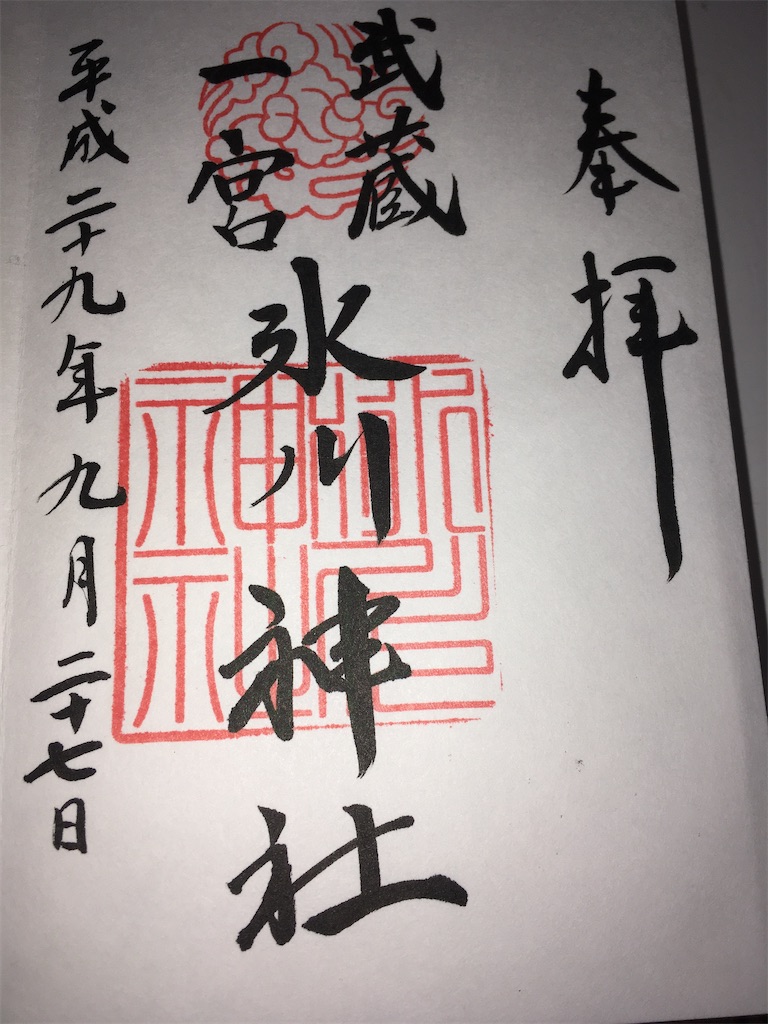 奉拝
武蔵
一宮
氷川神社
平成二十九年九月二十七日